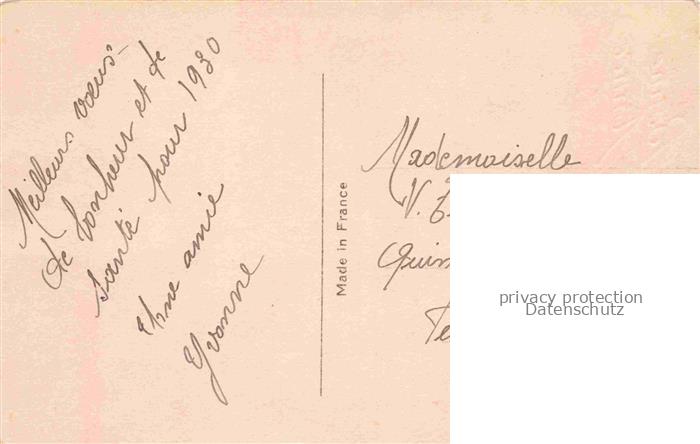 Meilleurs vœux
de bonheur et de
santé pour 1930
Une amie
Yvonne
Made in France
Mademoiselle
V.
privacy protection
Datenschutz